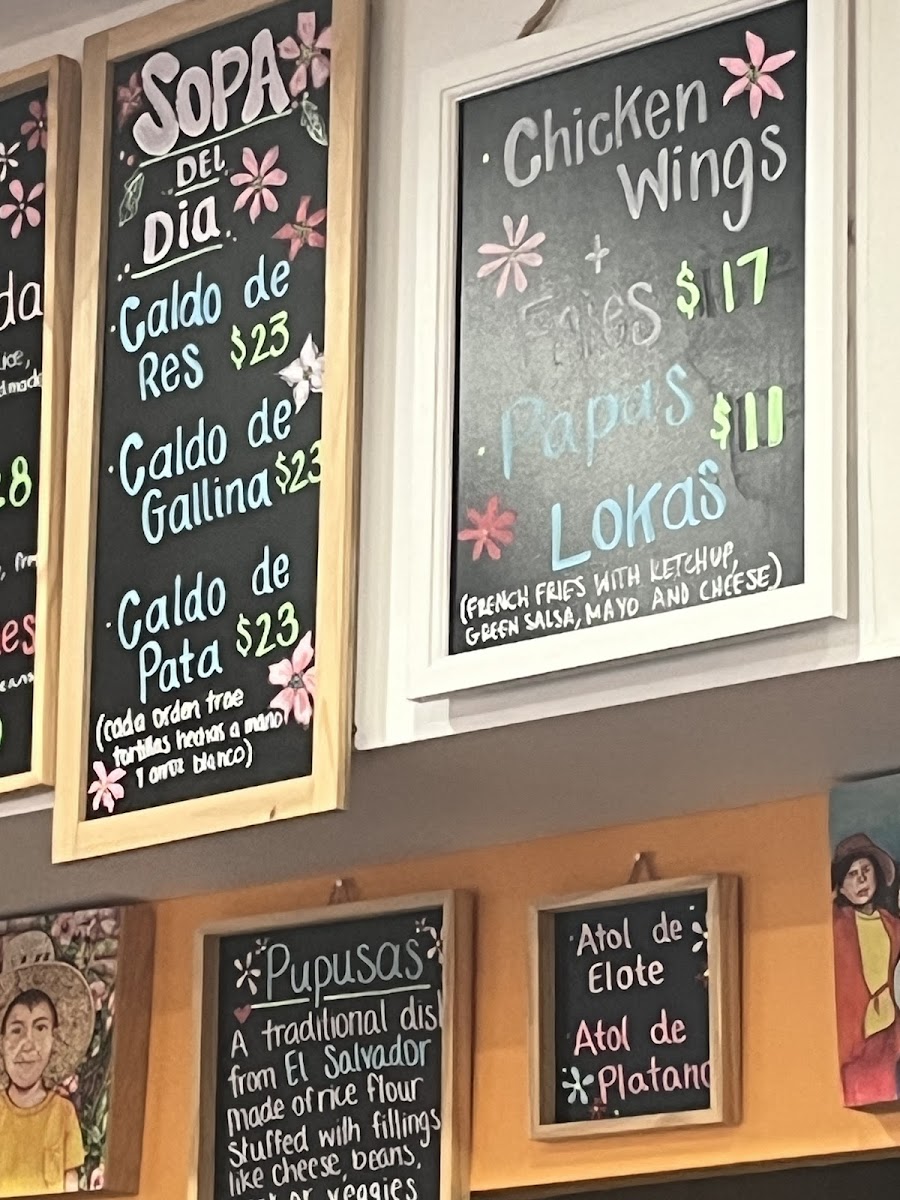 da
ice,
dmade
28
es
SOPA
DEL
Dia
·Caldo de
Res $23
·Caldo de
Gallina $23
·Caldo de
Pata $23
(cada orden trae
tortillas hechas a mano
y arroz blanco)
·Chicken
Wings
+
Fries $17
·Papas $11
LOKAS
(FRENCH FRIES WITH KETCHUP,
GREEN SALSA, MAYO AND CHEESE)
Pupusas
A traditional dish
from El Salvador
made of rice flour
Stuffed with fillings
like cheese, beans,
or veggies
·Atol de
Elote
Atol de
Platano